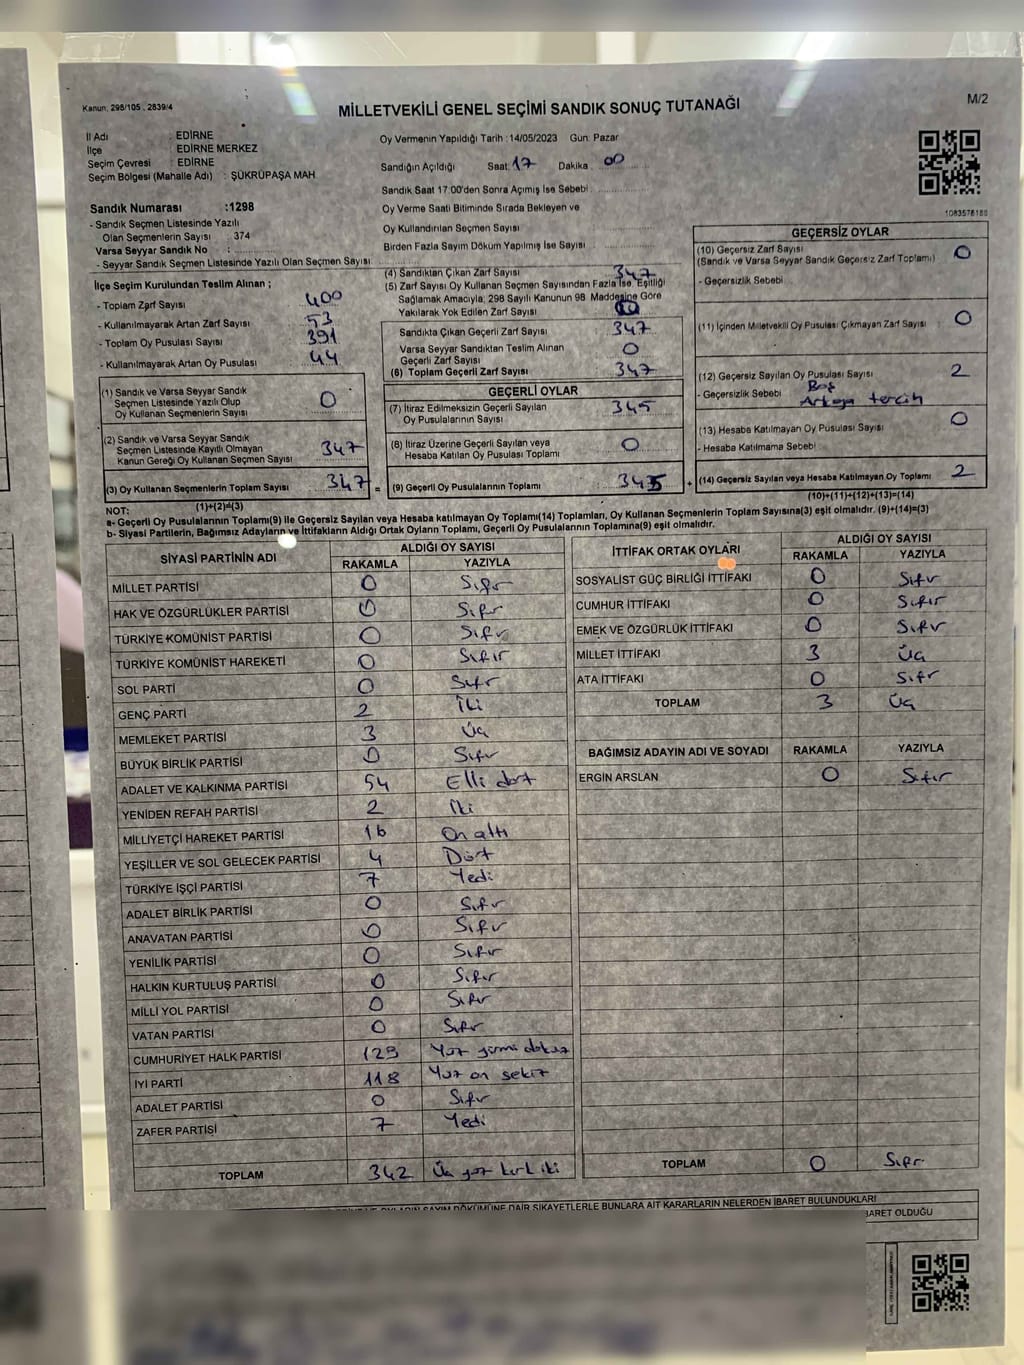 Kanun: 298/105, 2839/4
MİLLETVEKİLİ GENEL SEÇİMİ SANDIK SONUÇ TUTANAĞI
M/2
İl Adı : EDİRNE
İlçe : EDİRNE MERKEZ
Seçim Çevresi : EDİRNE
Seçim Bölgesi (Mahalle Adı) : ŞÜKRÜPAŞA MAH.
Oy Vermenin Yapıldığı Tarih : 14/05/2023 Gün: Pazar
Sandığın Açıldığı Saat: 17 Dakika 00
Sandık Saat 17:00'den Sonra Açımış İse Sebebi :
Oy Verme Saati Bitiminde Sırada Bekleyen ve
Oy Kullandırılan Seçmen Sayısı :
Birden Fazla Sayım Döküm Yapılmış İse Sayısı :
Sandık Numarası :1298
- Sandık Seçmen Listesinde Yazılı
Olan Seçmenlerin Sayısı : 374
Varsa Seyyar Sandık No :
- Seyyar Sandık Seçmen Listesinde Yazılı Olan Seçmen Sayısı :
İlçe Seçim Kurulundan Teslim Alınan ;
- Toplam Zarf Sayısı : 400
- Kullanılmayarak Artan Zarf Sayısı : 53
- Toplam Oy Pusulası Sayısı : 391
- Kullanılmayarak Artan Oy Pusulası : 44
(1) Sandık ve Varsa Seyyar Sandık
Seçmen Listesinde Yazılı Olup
Oy Kullanan Seçmenlerin Sayısı : 0
(2) Sandık ve Varsa Seyyar Sandık
Seçmen Listesinde Kayıtlı Olmayan
Kanun Gereği Oy Kullanan Seçmen Sayısı : 347
(3) Oy Kullanan Seçmenlerin Toplam Sayısı : 347
(1)+(2)=(3)
(4) Sandıktan Çıkan Zarf Sayısı : 347
(5) Zarf Sayısı Oy Kullanan Seçmen Sayısından Fazla İse, Eşitliği
Sağlamak Amacıyla; 298 Sayılı Kanunun 98 Maddesine Göre
Yakılarak Yok Edilen Zarf Sayısı :
Sandıkta Çıkan Geçerli Zarf Sayısı : 347
Varsa Seyyar Sandıktan Teslim Alınan
Geçerli Zarf Sayısı : 0
(6) Toplam Geçerli Zarf Sayısı : 347
GEÇERLİ OYLAR
(7) İtiraz Edilmeksizin Geçerli Sayılan
Oy Pusulalarının Sayısı : 345
(8) İtiraz Üzerine Geçerli Sayılan veya
Hesaba Katılan Oy Pusulası Toplamı : 0
= (9) Geçerli Oy Pusulalarının Toplamı : 345 +
1083578188
GEÇERSİZ OYLAR
(10) Geçersiz Zarf Sayısı : 0
(Sandık ve Varsa Seyyar Sandık Geçersiz Zarf Toplamı)
- Geçersizlik Sebebi :
(11) İçinden Milletvekili Oy Pusulası Çıkmayan Zarf Sayısı : 0
(12) Geçersiz Sayılan Oy Pusulası Sayısı : 2
- Geçersizlik Sebebi : Boş
tercih
(13) Hesaba Katılmayan Oy Pusulası Sayısı : 0
- Hesaba Katılmama Sebebi :
(14) Geçersiz Sayılan veya Hesaba Katılmayan Oy Toplamı : 2
(10)+(11)+(12)+(13)=(14)
NOT:
a- Geçerli Oy Pusulalarının Toplamı(9) ile Geçersiz Sayılan veya Hesaba katılmayan Oy Toplamı(14) Toplamları, Oy Kullanan Seçmenlerin Toplam Sayısına(3) eşit olmalıdır. (9)+(14)=(3)
b- Siyasi Partilerin, Bağımsız Adayların ve İttifakların Aldığı Ortak Oyların Toplamı, Geçerli Oy Pusulalarının Toplamına(9) eşit olmalıdır.
SİYASİ PARTİNİN ADI ALDIĞI OY SAYISI
RAKAMLA YAZIYLA
MİLLET PARTİSİ 0 Sıfır
HAK VE ÖZGÜRLÜKLER PARTİSİ 0 Sıfır
TÜRKİYE KOMÜNİST PARTİSİ 0 Sıfır
TÜRKİYE KOMÜNİST HAREKETİ 0 Sıfır
SOL PARTİ 0 Sıfır
GENÇ PARTİ 2 İki
MEMLEKET PARTİSİ 3 Üç
BÜYÜK BİRLİK PARTİSİ 0 Sıfır
ADALET VE KALKINMA PARTİSİ 54 Elli dört
YENİDEN REFAH PARTİSİ 2 İki
MİLLİYETÇİ HAREKET PARTİSİ 16 On altı
YEŞİLLER VE SOL GELECEK PARTİSİ 4 Dört
TÜRKİYE İŞÇİ PARTİSİ 7 Yedi
ADALET BİRLİK PARTİSİ 0 Sıfır
ANAVATAN PARTİSİ 0 Sıfır
YENİLİK PARTİSİ 0 Sıfır
HALKIN KURTULUŞ PARTİSİ 0 Sıfır
MİLLİ YOL PARTİSİ 0 Sıfır
VATAN PARTİSİ 0 Sıfır
CUMHURİYET HALK PARTİSİ 129 Yüz yirmi dokuz
İYİ PARTİ 118 Yüz on sekiz
ADALET PARTİSİ 0 Sıfır
ZAFER PARTİSİ 7 Yedi
TOPLAM 342 Üç yüz kırk iki
İTTİFAK ORTAK OYLARI ALDIĞI OY SAYISI
RAKAMLA YAZIYLA
SOSYALİST GÜÇ BİRLİĞİ İTTİFAKI 0 Sıfır
CUMHUR İTTİFAKI 0 Sıfır
EMEK VE ÖZGÜRLÜK İTTİFAKI 0 Sıfır
MİLLET İTTİFAKI 3 Üç
ATA İTTİFAKI 0 Sıfır
TOPLAM 3 Üç
BAĞIMSIZ ADAYIN ADI VE SOYADI RAKAMLA YAZIYLA
ERGİN ARSLAN 0 Sıfır
TOPLAM 0 Sıfır
SAYIM DÖKÜMÜNE DAİR ŞİKAYETLERLE BUNLARA AİT KARARLARIN NELERDEN İBARET BULUNDUKLARI
İBARET OLDUĞU